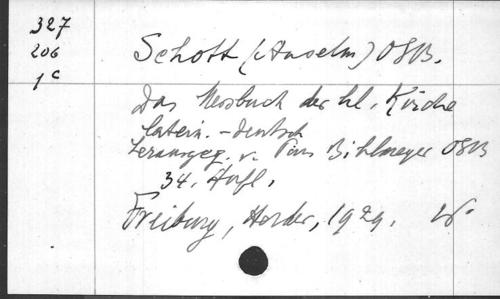 327
206
1c
Schott (Anselm) OSB.
Das Messbuch der hl. Kirche
latein. - deutsch
herausgeg. v. Pius Bihlmeyer OSB
34. Aufl.
Freiburg, Herder, 1929.